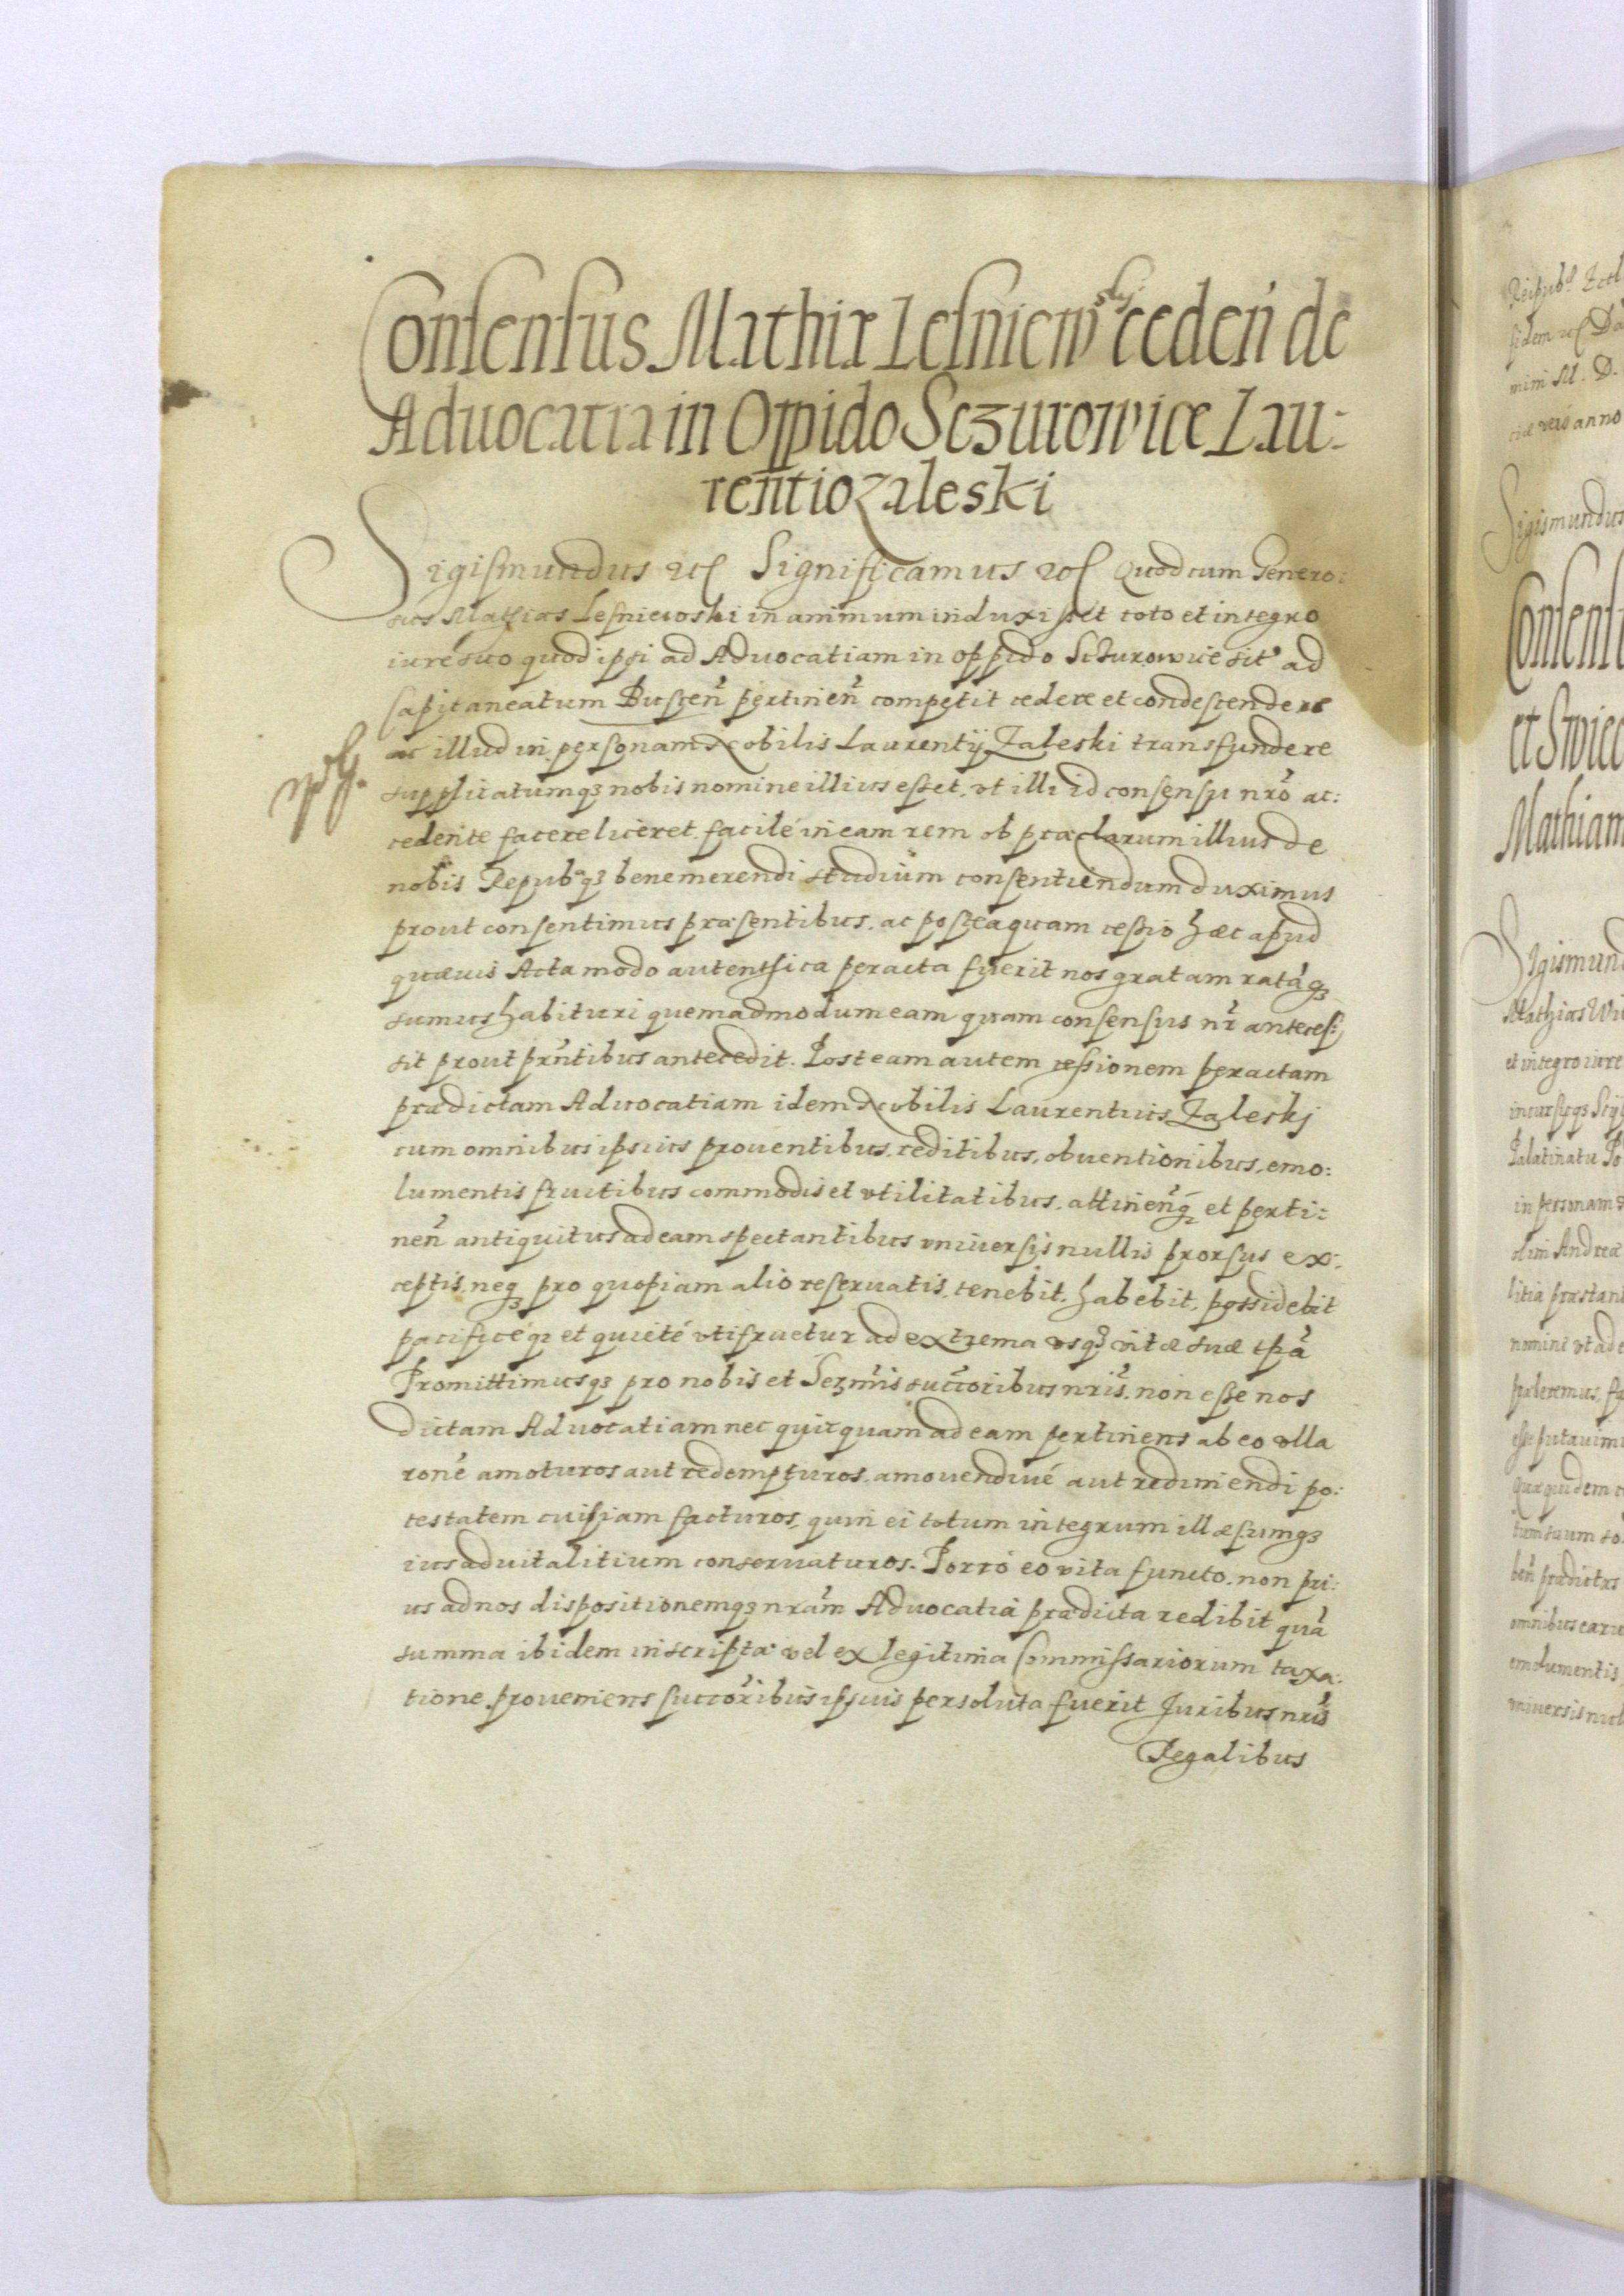 Consensus Mathiæ Lesniewskj ceden̄ de
Aduocatia in Oppido Sczurowice Lau-
ren̄tio Zaleski
Sigismundus etc Significamus etc Quod cum Genero:
sus Mathias Lesniewski in animum induxisset toto et integro
iure suo quod ipsi ad Aduocatiam in oppido Sczurowice sit' ad
Capitaneatum Buscen̄ pertinen̄ competit cedere et condescendere
ac illud in personam Nobilis Laurentij Zaleski transfundere
supplicatumqꝫ nobis nomine illius esset, vt illi id consensu nr̄o ac:
cedente facere liceret. facilé in eam rem ob præclarum illius de
nobis Repub.qꝫ benemerendi studium consentiendum duximus
prout consentimus præsentibus. ac posteaquam cessio hæc apud
quæuis Acta modo autenthica peracta fuerit nos gratam ratāqꝫ
sumus habituri quemadmodum eam quam consensus nr̄ antecesse
sit prout prn̄tibus antecedit. Post eam autem cessionem peractam
prædictam Aduocatiam idem Nobilis Laurentius Zaleskj
cum omnibus ipsius prouentibus, reditibus, obuentionibus, emo:
lumentis fructibus commodis et vtilitatibus. attinen̄qꝫ et perti:
nen̄ antiquitus ad eam spectantibus vniuersis nullis prorsus ex:
ceptis, neqꝫ pro quopiam alio reseruatis, tenebit, habebit, possidebit
pacificéqꝫ et quieté vtifruetur ad extrema vsqꝫ vitæ suæ tp̄a
Promittimusqꝫ pro nobis et Serm̄is succ̄oribus nr̄is, non esse nos
dictam Aduocatiam nec quicquam ad eam pertinens ab eo vlla
ron̄e amoturos aut redempturos, amouendiué aut redimendi po:
testatem cuipiam facturos, quin ei totum integrum illæsumqꝫ
ius aduitalitium conseruaturos. Porró eo vita functo, non pri:
us ad nos dispositionemqꝫ nr̄am Aduocatia prædicta redibit quā
summa ibidem inscripta vel ex legitima Commissariorum taxa:
tione proueniens succ̄oribus ipsius persoluta fuerit Juribus nr̄is
Regalibus
Sigismundus
Mathiam